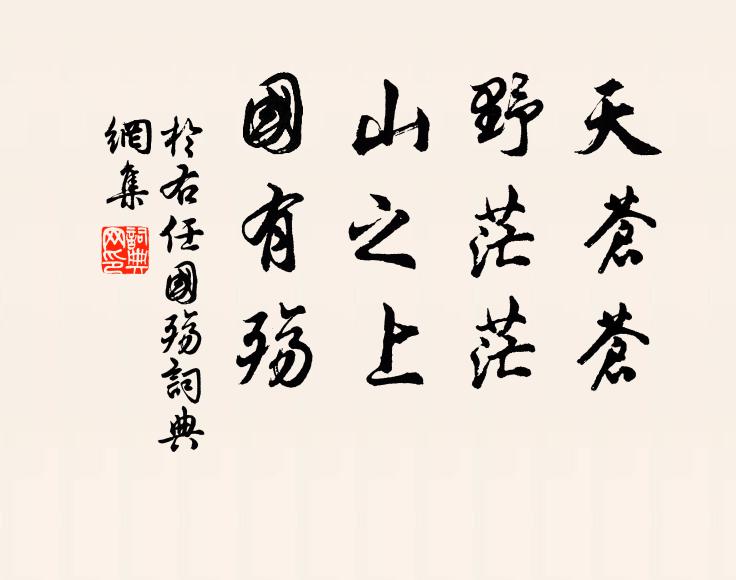 天蒼蒼
野茫茫
山之上
國有殤
於右任國殤詞典
網集
詞典
网印